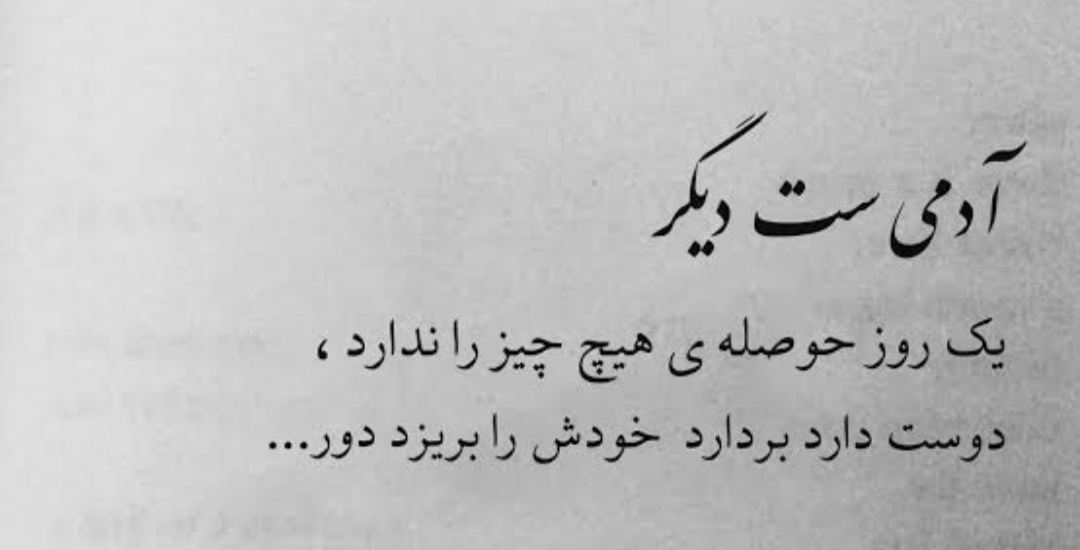 آدمی ست دیگر
یک روز حوصله ی هیچ چیز را ندارد ،
دوست دارد بردارد خودش را بریزد دور...